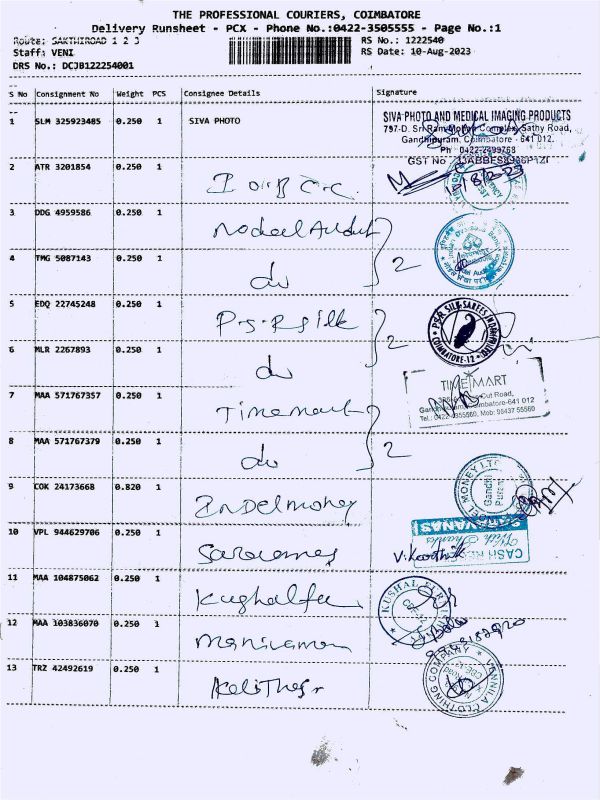 THE PROFESSIONAL COURIERS, COIMBATORE
Delivery Runsheet - PCX - Phone No.:0422-3505555 - Page No.:1
Route: SAKTHIROAD 1 2 3
RS No.: 1222540
Staff: VENI
RS Date: 10-Aug-2023
DRS No.: DCJB122254001
S No Consignment No Weight PCS Consignee Details Signature
1 SLM 325923485 0.250 1 SIVA PHOTO
SIVA PHOTO AND MEDICAL IMAGING PRODUCTS
797-D. Sri Ram Complex, Sathy Road,
Gandhipuram, Coimbatore - 641 012.
Ph 0422-2499768
GST No
2 ATR 3201854 0.250 1
3 DDG 4959586 0.250 1
4 TMG 5087143 0.250 1 do 2
5 EDQ 22745248 0.250 1 P.S.R Silk
PSR SILK SAREES
COIMBATORE-12
6 MLR 2267893 0.250 1 do 2
7 MAA 571767357 0.250 1 Timemart
TIME MART
Cut Road,
Coimbatore-641 012
Mob: 98437 55560
8 MAA 571767379 0.250 1 do 2
9 COK 24173668 0.820 1 Indelmoney
MONEY LTD
Gandhi
10 VPL 944629706 0.250 1
SARAVANAS
With Thanks
V. Karthik
11 MAA 104875062 0.250 1
KUSHAL
12 MAA 103836070 0.250 1
13 TRZ 42492619 0.250 1
VANNILA CLOTHING COMPANY